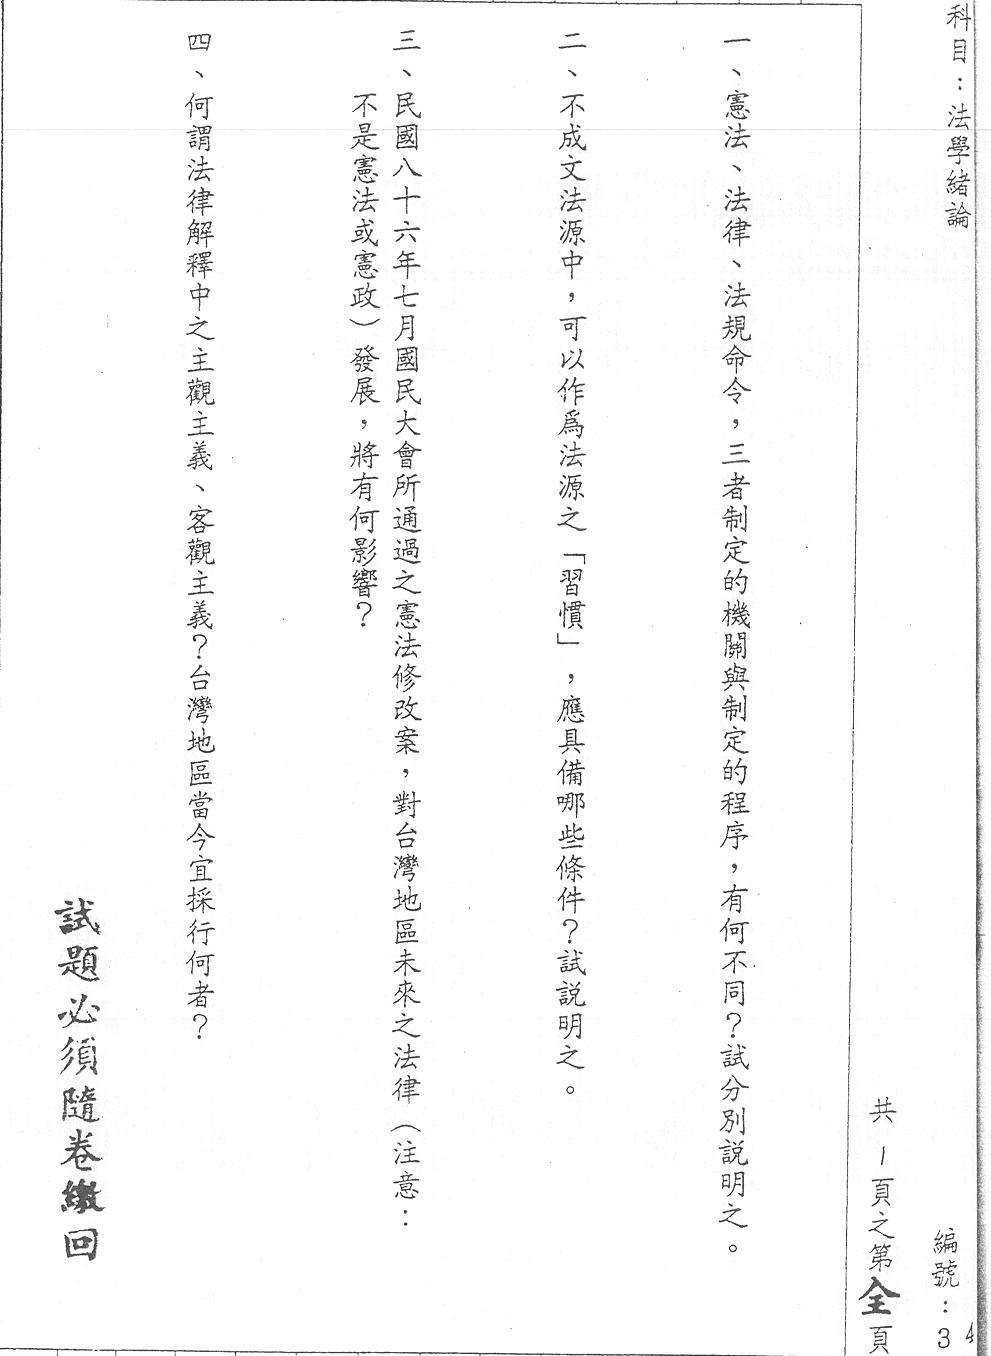 科目：法學緒論
編號：34
共1頁之第全頁
一、憲法、法律、法規命令，三者制定的機關與制定的程序，有何不同？試分別説明之。
二、不成文法源中，可以作爲法源之「習慣」，應具備哪些條件？試説明之。
三、民國八十六年七月國民大會所通過之憲法修改案，對台灣地區未來之法律（注意：
不是憲法或憲政）發展，將有何影響？
四、何謂法律解釋中之主觀主義、客觀主義？台灣地區當今宜採行何者？
試題必須隨卷繳回